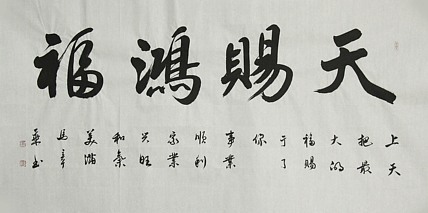 天賜鴻福
上天
把最
大的
福賜
于了
你
事業
順利
家業
兴旺
和氣
美滿